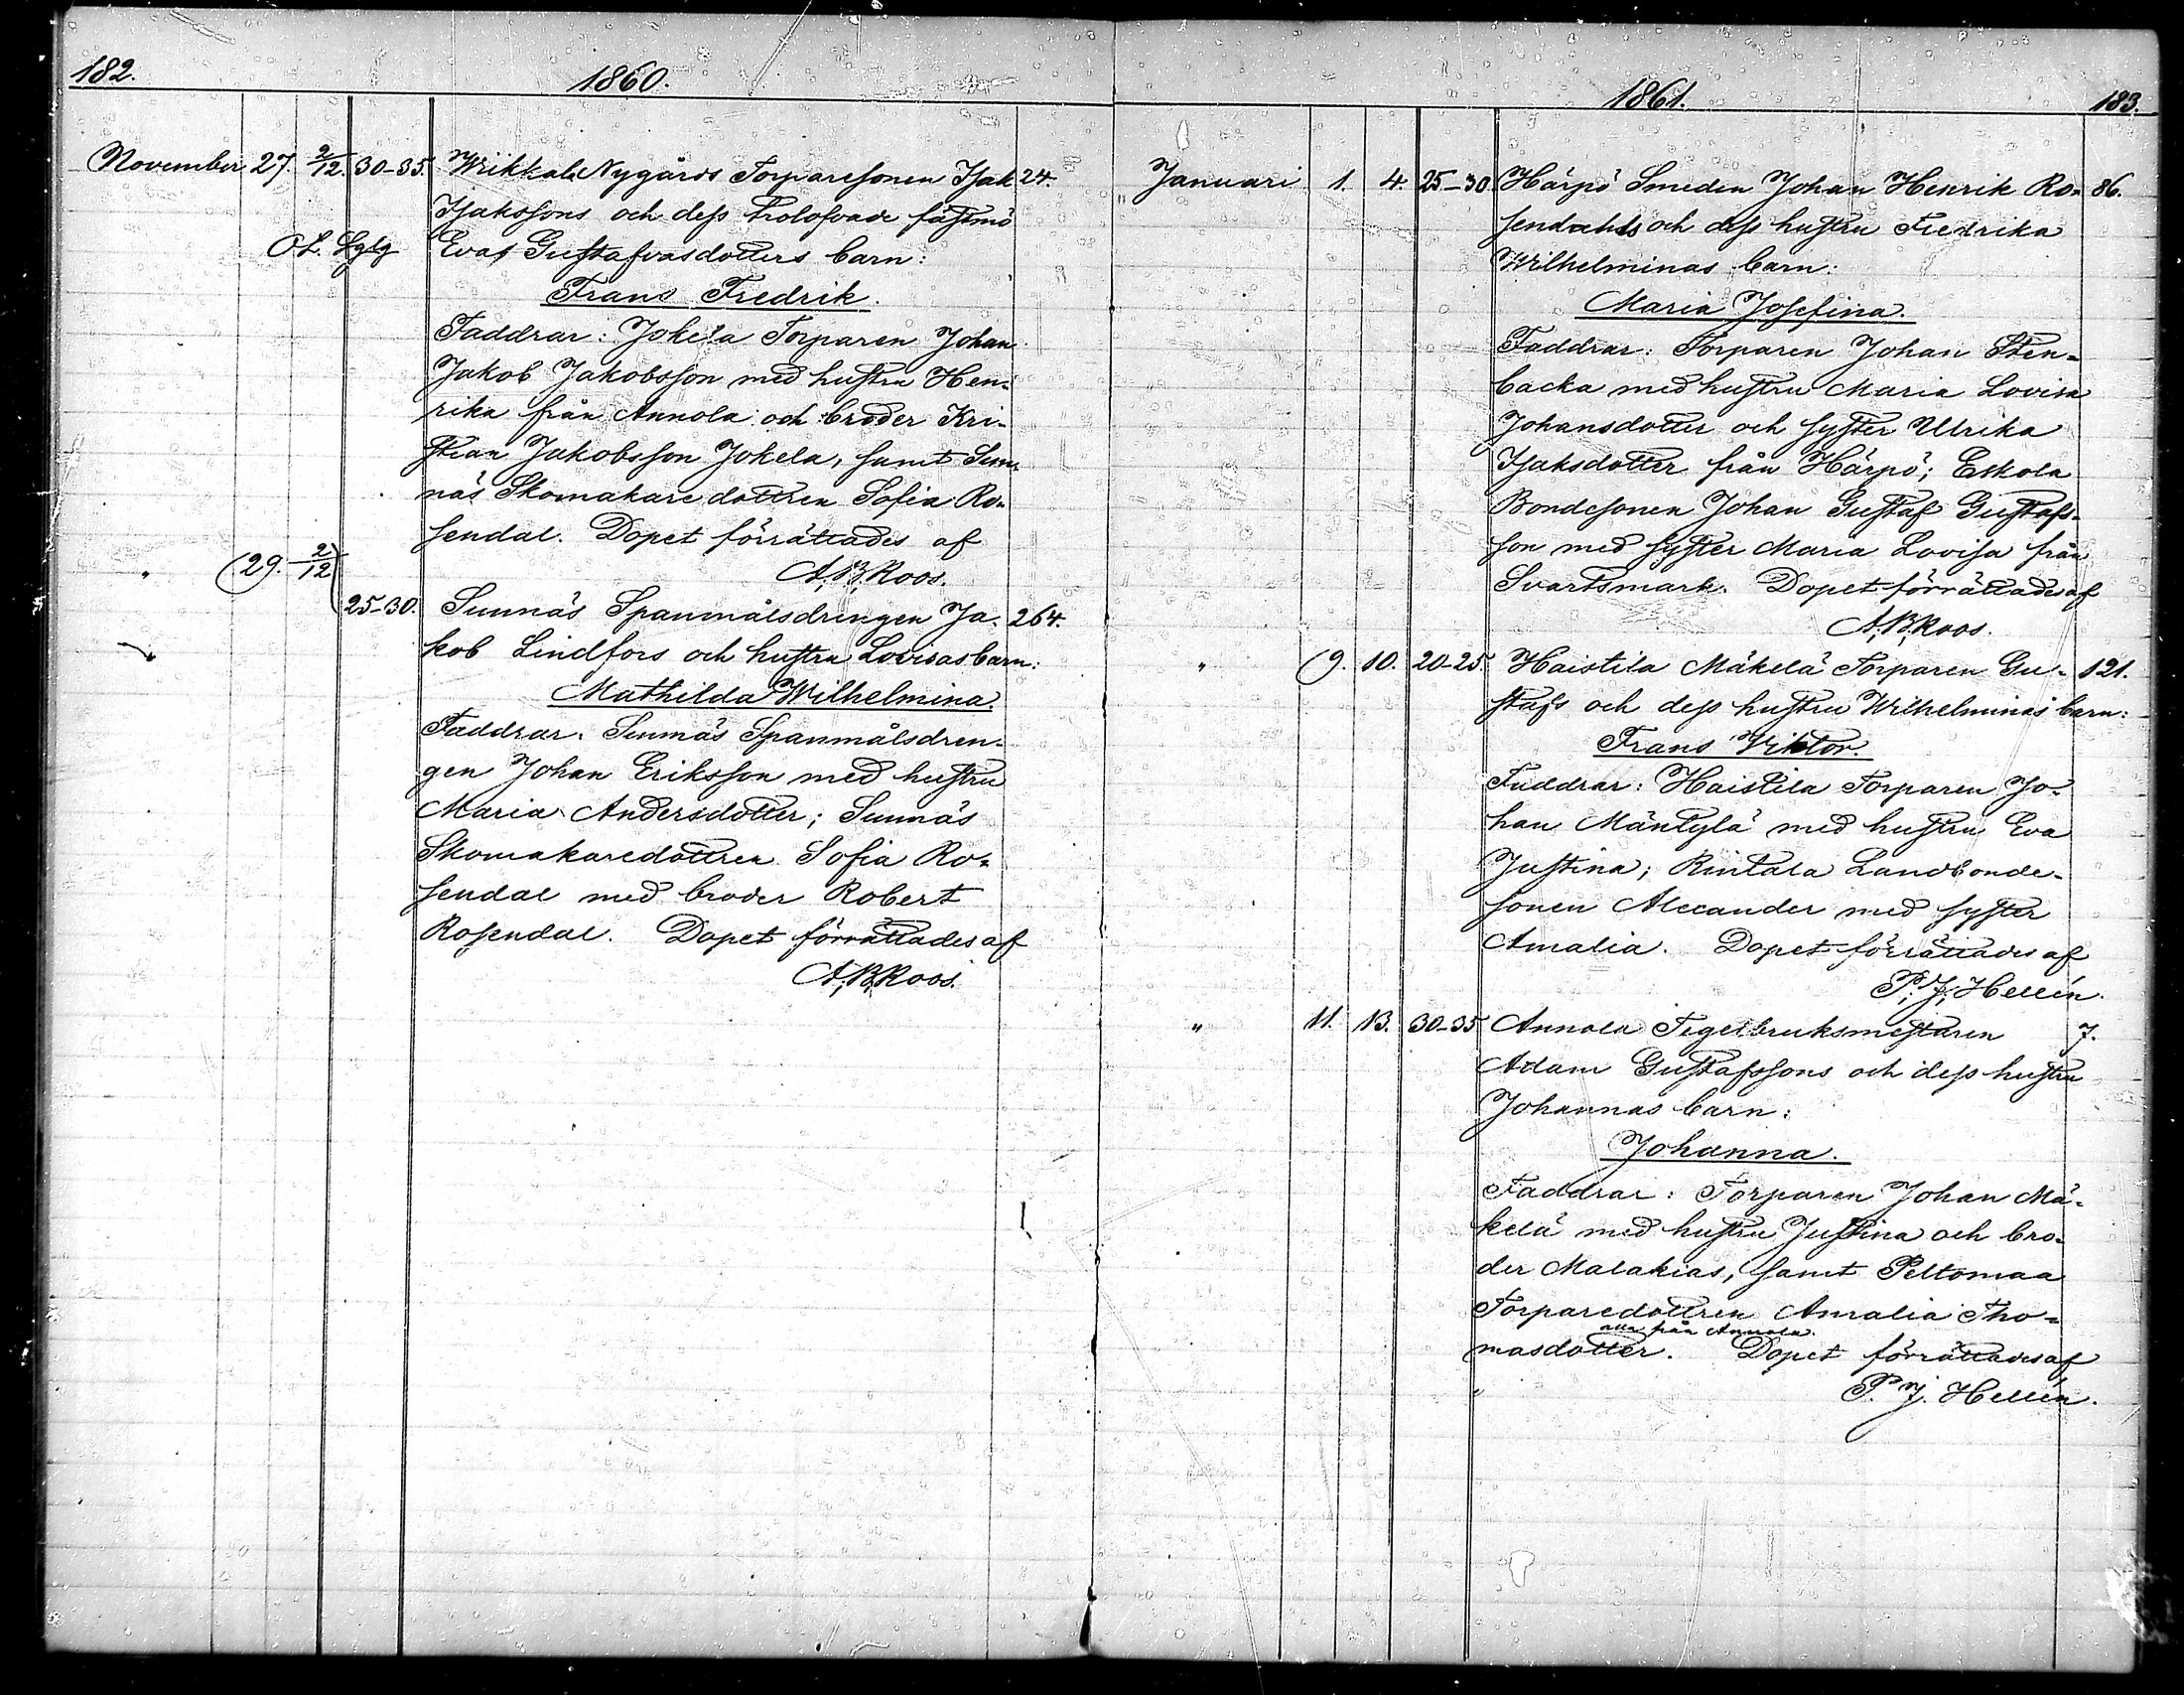 182.
1860.
November 27. 2/12. 30-35. Wrikkala Nygårds Torparesonen Isak 24.
Isakssons och dess trolofvade fästmö
Evas Gustafvasdotters barn:
Frans Fredrik.
Faddrar: Jokela Torparen Johan
Jakob Jakobsson med hustru Hen-
rika från Annola och broder Kri-
stian Jakobsson Jokela, samt Sun-
näs Skomakaredottren Sofia Ro-
sendal. Dopet förrättades af
A. B. Roos.
" 29. 2/12 25-30. Sunnäs Spanmålsdrengen Ja- 264.
kob Lindfors och hustru Lovisas barn:
Mathilda Wilhelmina.
Faddrar: Sunnäs Spanmålsdren-
gen Johan Eriksson med hustru
Maria Andersdotter; Sunnäs
Skomakaredottren Sofia Ro-
sendal med broder Robert
Rosendal. Dopet förrättades af
A. B. Roos.
1861.
183.
Januari 1. 4. 25-30. Härpö Smeden Johan Henrik Ro- 86.
sendahls och dess hustru Fredrika
Wilhelminas barn:
Maria Josefina.
Faddrar: Torparen Johan Sten-
backa med hustru Maria Lovisa
Johansdotter och syster Ulrika
Isaksdotter från Härpö; Eskola
Bondesonen Johan Gustaf Gustafs-
son med syster Maria Lovisa från
Svartsmark. Dopet förrättades af
A. B. Roos.
" 9. 10. 20-25. Haistila Mäkelä Torparen Gu- 121.
stafs och dess hustru Wilhelminas barn:
Frans Viktor.
Faddrar: Haistila Torparen Jo-
han Mäntylä med hustru Eva
Justina; Rintala Landbonde-
sonen Alexander med syster
Amalia. Dopet förrättades af
P. J. Hellén.
" 11. 13. 30-35 Annola Tegelbruksmestaren 7.
Adam Gustafssons och dess hustru
Johannas barn:
Johanna.
Faddrar: Torparen Johan Mä-
kelä med hustru Justina och bro-
der Malakias, samt Peltomaa
Torparedottren Amalia Tho-
alla från Annola.
masdotter. Dopet förrättades af
P. J. Hellén.